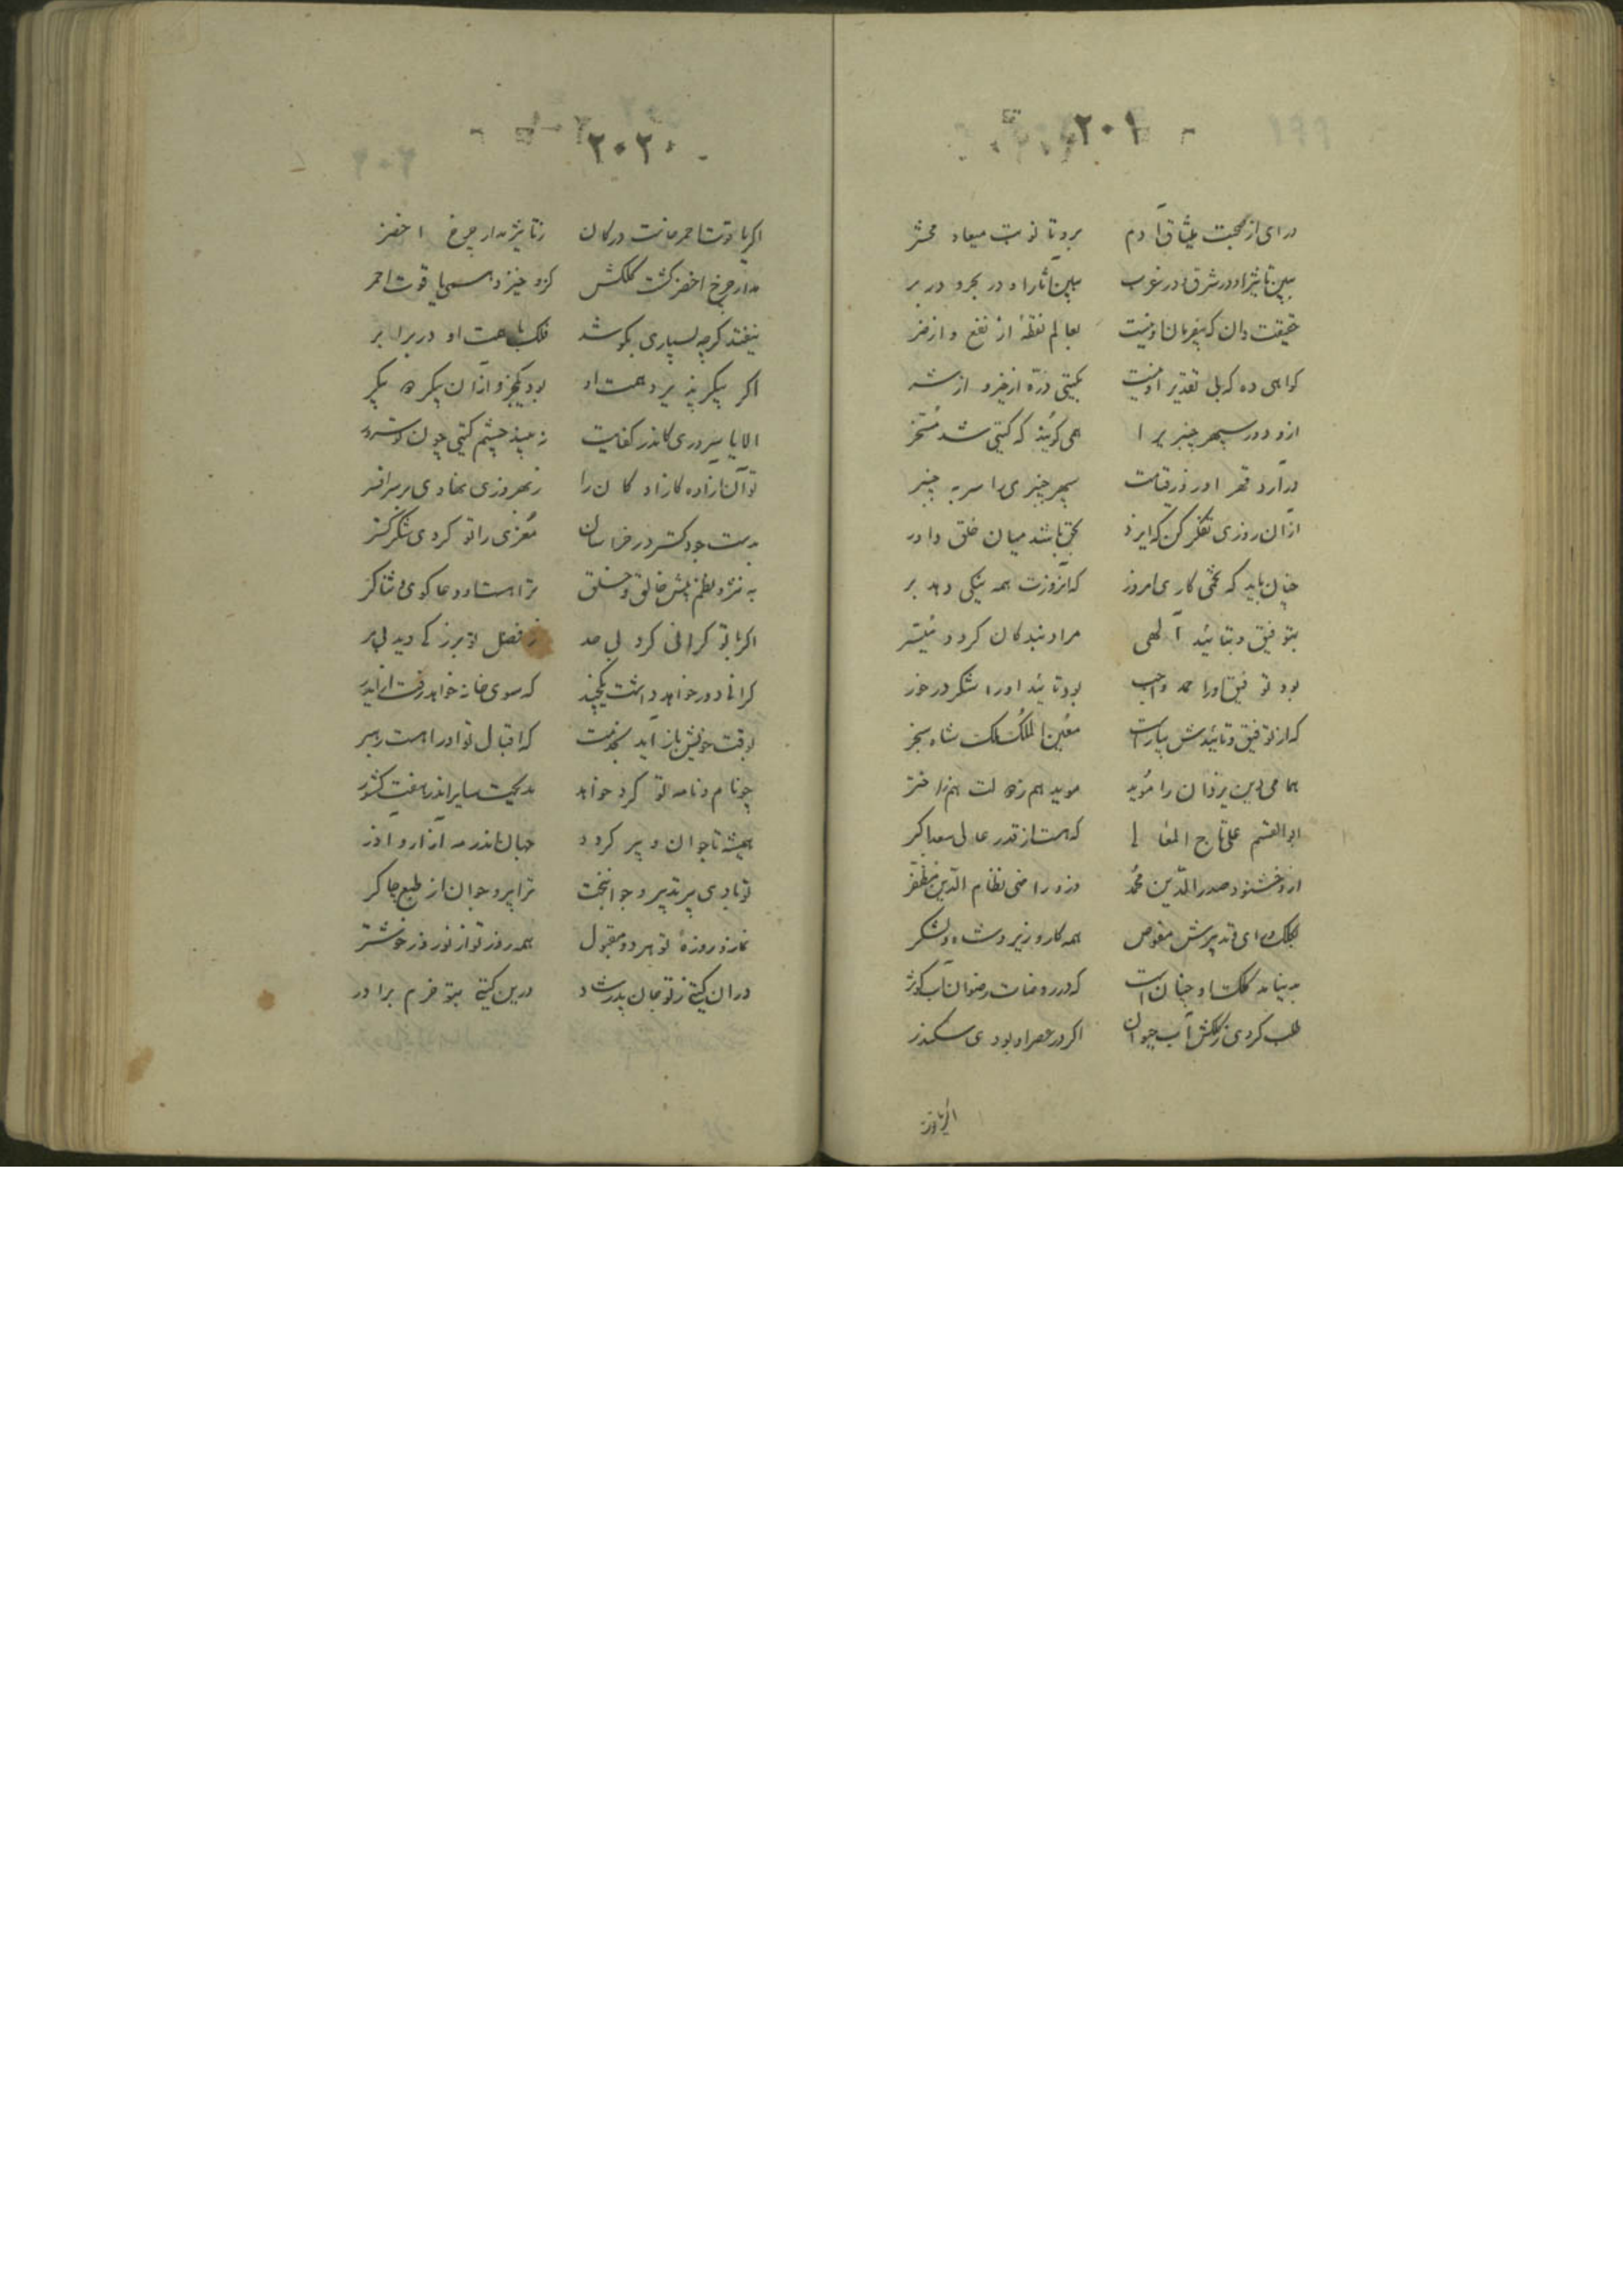 ۲۰۱
درای از صحبت میثاق آدم برو تا نوبت میعاد محشر
ببین تاثیر او در شرق و در غرب ببین آثار او در بحر و در بر
حقیقت دان که بیفرمان او نیست بعالم نقطهٔ از نفع و از ضر
کواهی ده که بل تقدیر او نیست بکیتی ذرّه از خیر و از شر
ازو دور سپهر چنبریرا همی کویند که کیتی شد مُسَخّر
درآرد قهر او روز قیامت سپهر چنبری را سر به چنبر
ازآن روزی تفکر کن که ایزد بحق باشد میان خلق داور
چنان باید که تخمی کاری امروز که آنروزت همه نیکی دهد بر
بتوفیق و بتائید آلهی مراد بندکان کردد مُیَسّر
بود توفیق اورا حمد واجب بود تائید اورا شکر درخور
که از توفیق و تائیدش بیاراست مُعین الملک ملک شاه سنجر
همامی دین یزدان را مُوید موید هم ز هم
ابوالقسم علی تاج المعالی که هست از قدر عالی سعد اکبر
ازو خشنود صدر الدّین محمّد وزو راضی نظام الدّین مظفّر
بکلک و رای و تدبیرش مفوض همه کار وزیر و شاه و لشکر
به بنیاند کلک او چنان است که در روضات رضوان آب کوثر
طلب کردی ز کلکش آب حیوان اکر در عصر او بودی سکندر
اکر یاقوت
۲۰۲
اکر یاقوت احمر خاست در کان ز تاثیر مدار چرخ اخضر
مدار چرخ اخضر کشت کلکش کزو خیزد همی یاقوت احمر
نیفتد کرچه بسیاری بکوشد فلک با همت او در برابر
اکر پیکر پذیرد همت او بود یکجزو ازآن پیکر دو پیکر
الا یا سروری کاندر کفایت نه بیند چشم کیتی چون تو سرور
تو آن آزاده کازادکان را ز بهروزی نهادی بر سر افسر
بدست جود کستر در خراسان مُعزی را تو کردی شکر کستر
به نثر و نظم پیش خالق و خلق ترا هست او دعاکوی و ثناکر
اکر با تو کرانی کرد بی حد ز فضل تو برز که دید بی مر
کرانی دور خواهد داشت یکچند که سوی خانه خواهد رفت از ایدر
بوقت خویش باز آید بخدمت که اقبال تو اورا هست رهبر
چو نام و نامه تو کرد خواهد مدیحت سایر اندر هفت کشور
همیشه تا جوان و پیر کردد جهان اندر مه آزار و آذر
تو بادی پیر تدبیر و جوانبخت ترا پیر و جوان از طبع چاکر
نماز و روزهٔ تو هر دو مقبول همه روز تو از نوروز خوشتر
در آن کیتی ز تو جان پدر شاد درین کیتی بتو خرم برادر